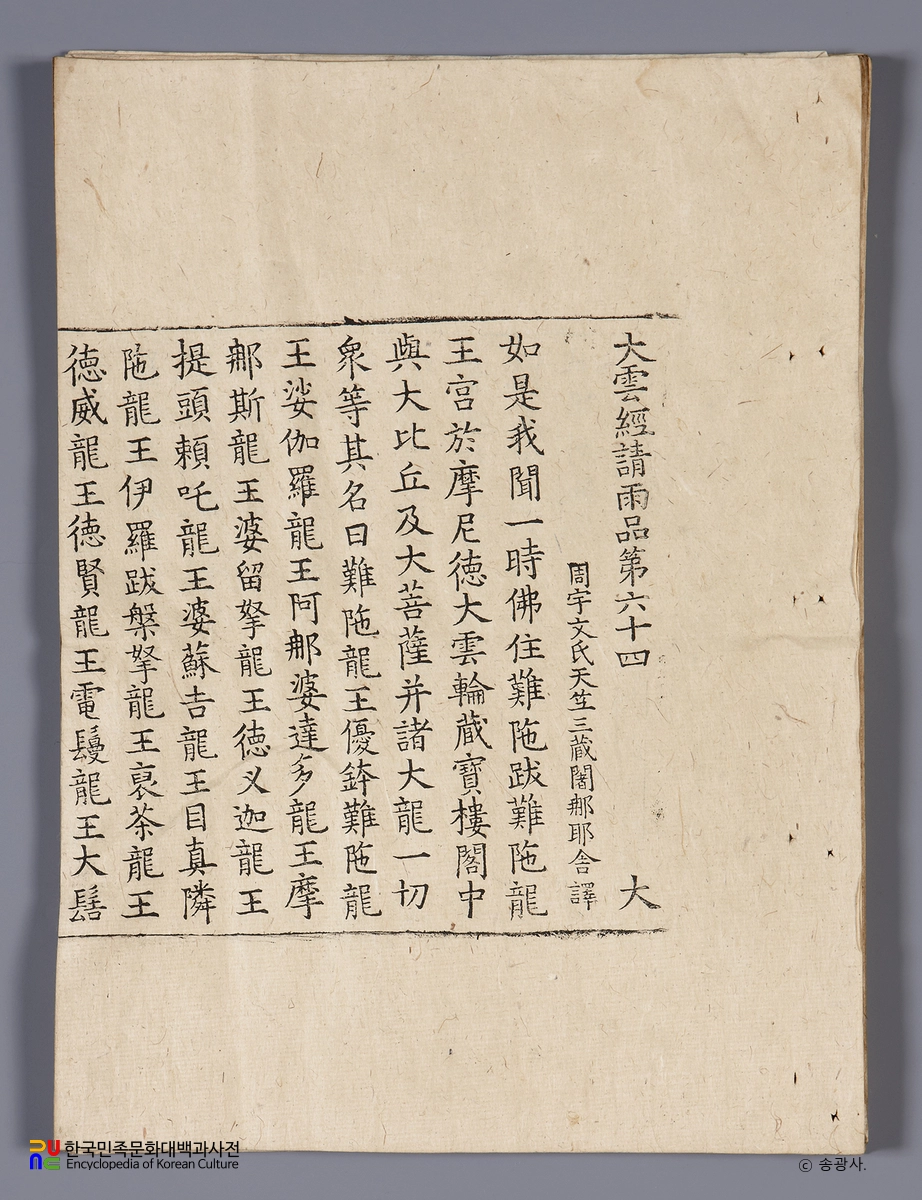 大雲經請雨品第六十四 大
周宇文氏天竺三藏闍那耶舍 譯
如是我聞一時佛住難陁跋難陁龍
王宮於摩尼德大雲輪藏寶樓閣中
與大比丘及大菩薩并諸大龍一切
衆等其名曰難陁龍王優鉢難陁龍
王娑伽羅龍王阿那婆達多龍王摩
那斯龍王婆留拏龍王德叉迦龍王
提頭賴吒龍王婆蘇吉龍王目真隣
陁龍王伊羅跋槃拏龍王裒茶龍王
德威龍王德賢龍王電鬘龍王大髻
한국민족문화대백과사전
Encyclopedia of Korean Culture
ⓒ 송광사.